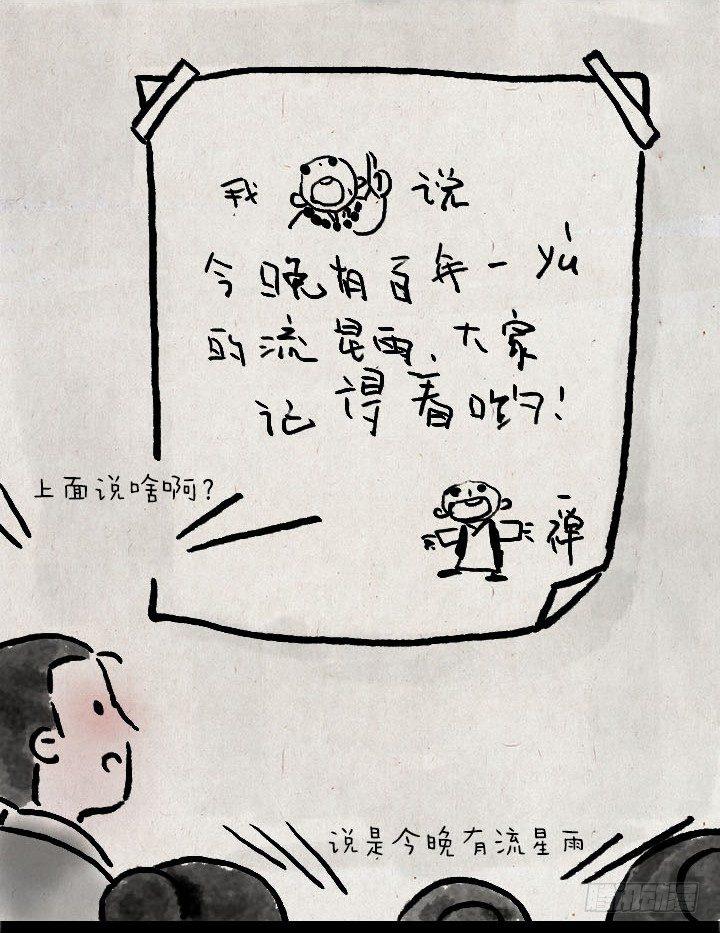 我 说
今晚有百年一yù
的流星雨、大家
记得看哟!
一禅
上面说啥啊?
说是今晚有流星雨
腾讯动漫